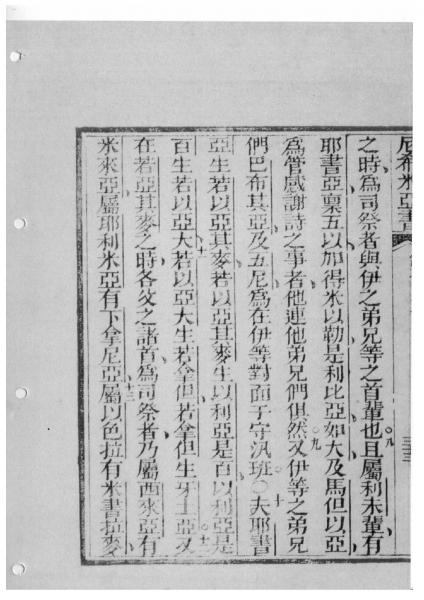 尼希米亞書
之時爲司祭者與伊之弟兄等之首輩也且屬利未輩有
耶書亞禀五以加得米以勒是利比亞如大及馬但以亞
爲管感謝詩之事者他連他弟兄們俱然又伊等之弟兄
們巴布其亞及五尼爲在伊等對面于守汛班○夫耶書
亞生若以亞其麥若以亞其麥生以利亞是百以利亞是
百生若以亞大若以亞大生若拿但若拿但生牙士亞又
在若亞其麥之時各父之諸首爲司祭者乃屬西來亞有
米來亞屬耶利米亞有下拿尼亞屬以色拉有米書拉麥